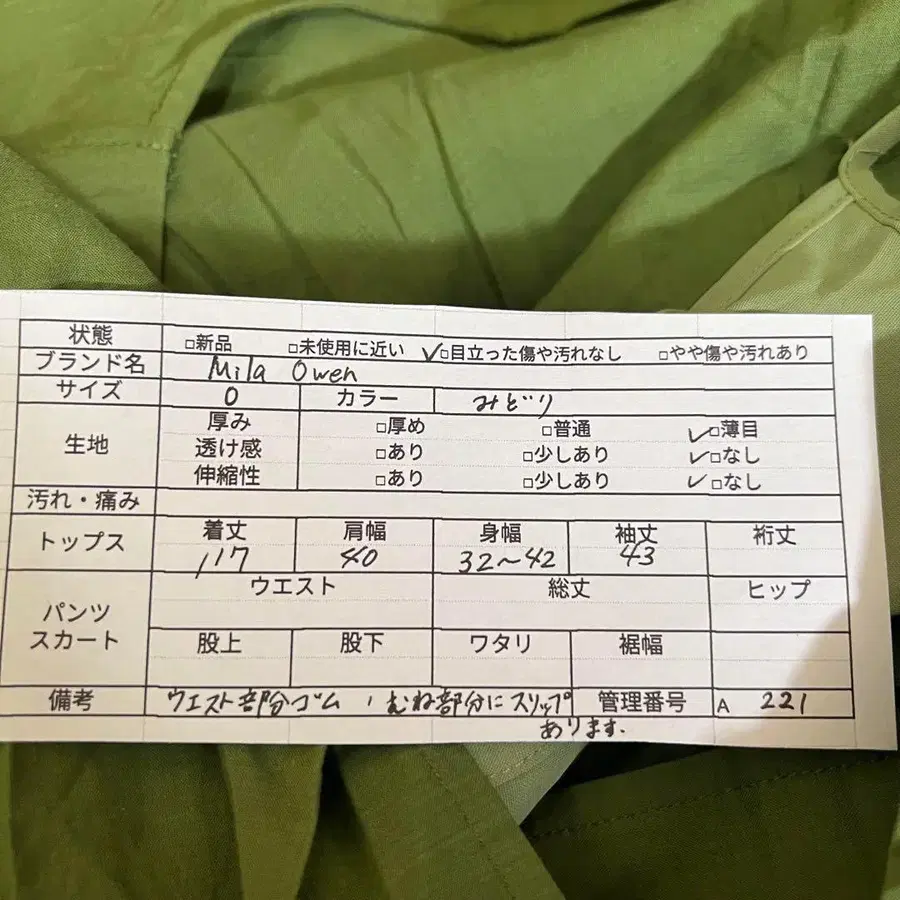 状態 □新品 □未使用に近い ✓□目立った傷や汚れなし □やや傷や汚れあり
ブランド名 Mila Owen
サイズ 0 カラー みどり
生地 厚み □厚め □普通 ✓□薄目
透け感 □あり □少しあり ✓□なし
伸縮性 □あり □少しあり ✓□なし
汚れ・痛み
トップス 着丈 肩幅 身幅 袖丈 裄丈
117 40 32〜42 43
パンツ ウエスト 総丈 ヒップ
スカート 股上 股下 ワタリ 裾幅
備考 ウエスト部分ゴム、むね部分にスリップ 管理番号 A 221
あります.